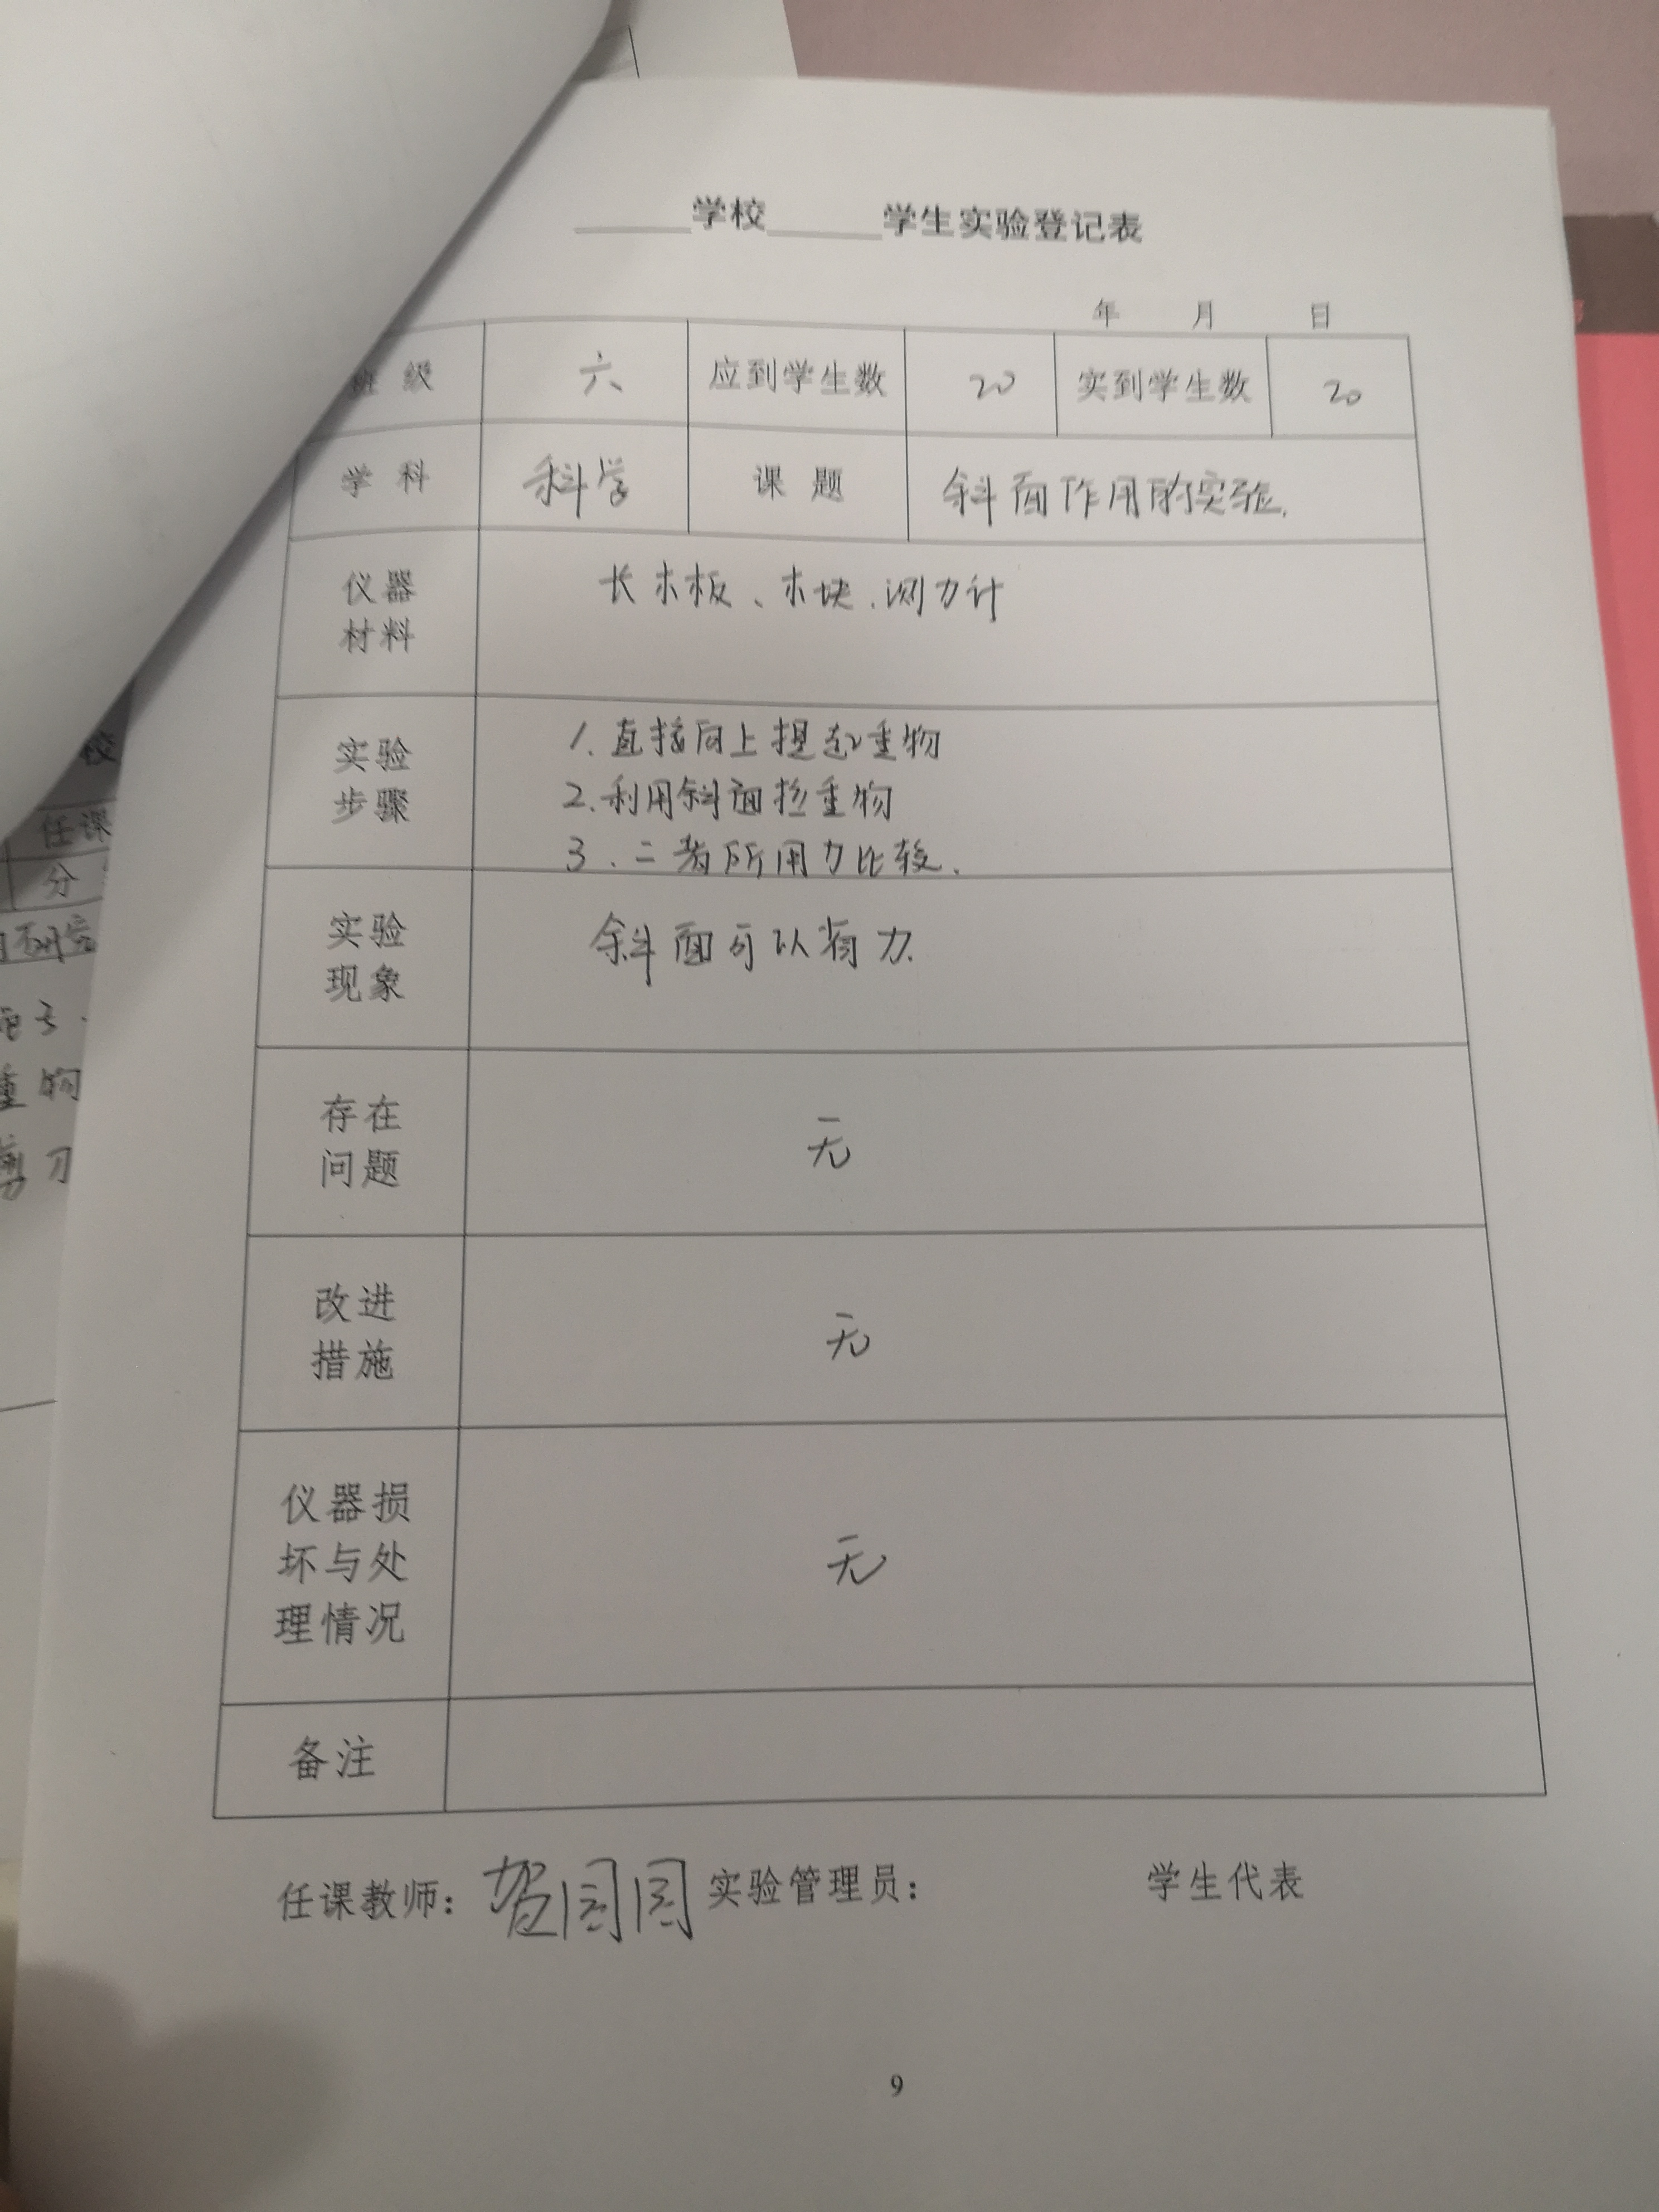 ______学校______学生实验登记表
年 月 日
班 级 六 应到学生数 20 实到学生数 20
学 科 科学 课 题 斜面作用的实验.
仪器
材料
长木板、木块、测力计
实验
步骤
1.直接向上提起重物
2.利用斜面拉重物
3.二者所用力比较.
实验
现象
斜面可以省力.
存在
问题
无
改进
措施
无
仪器损
坏与处
理情况
无
备注
任课教师：贺园园 实验管理员： 学生代表
9
校
任课
分
重物
剪刀